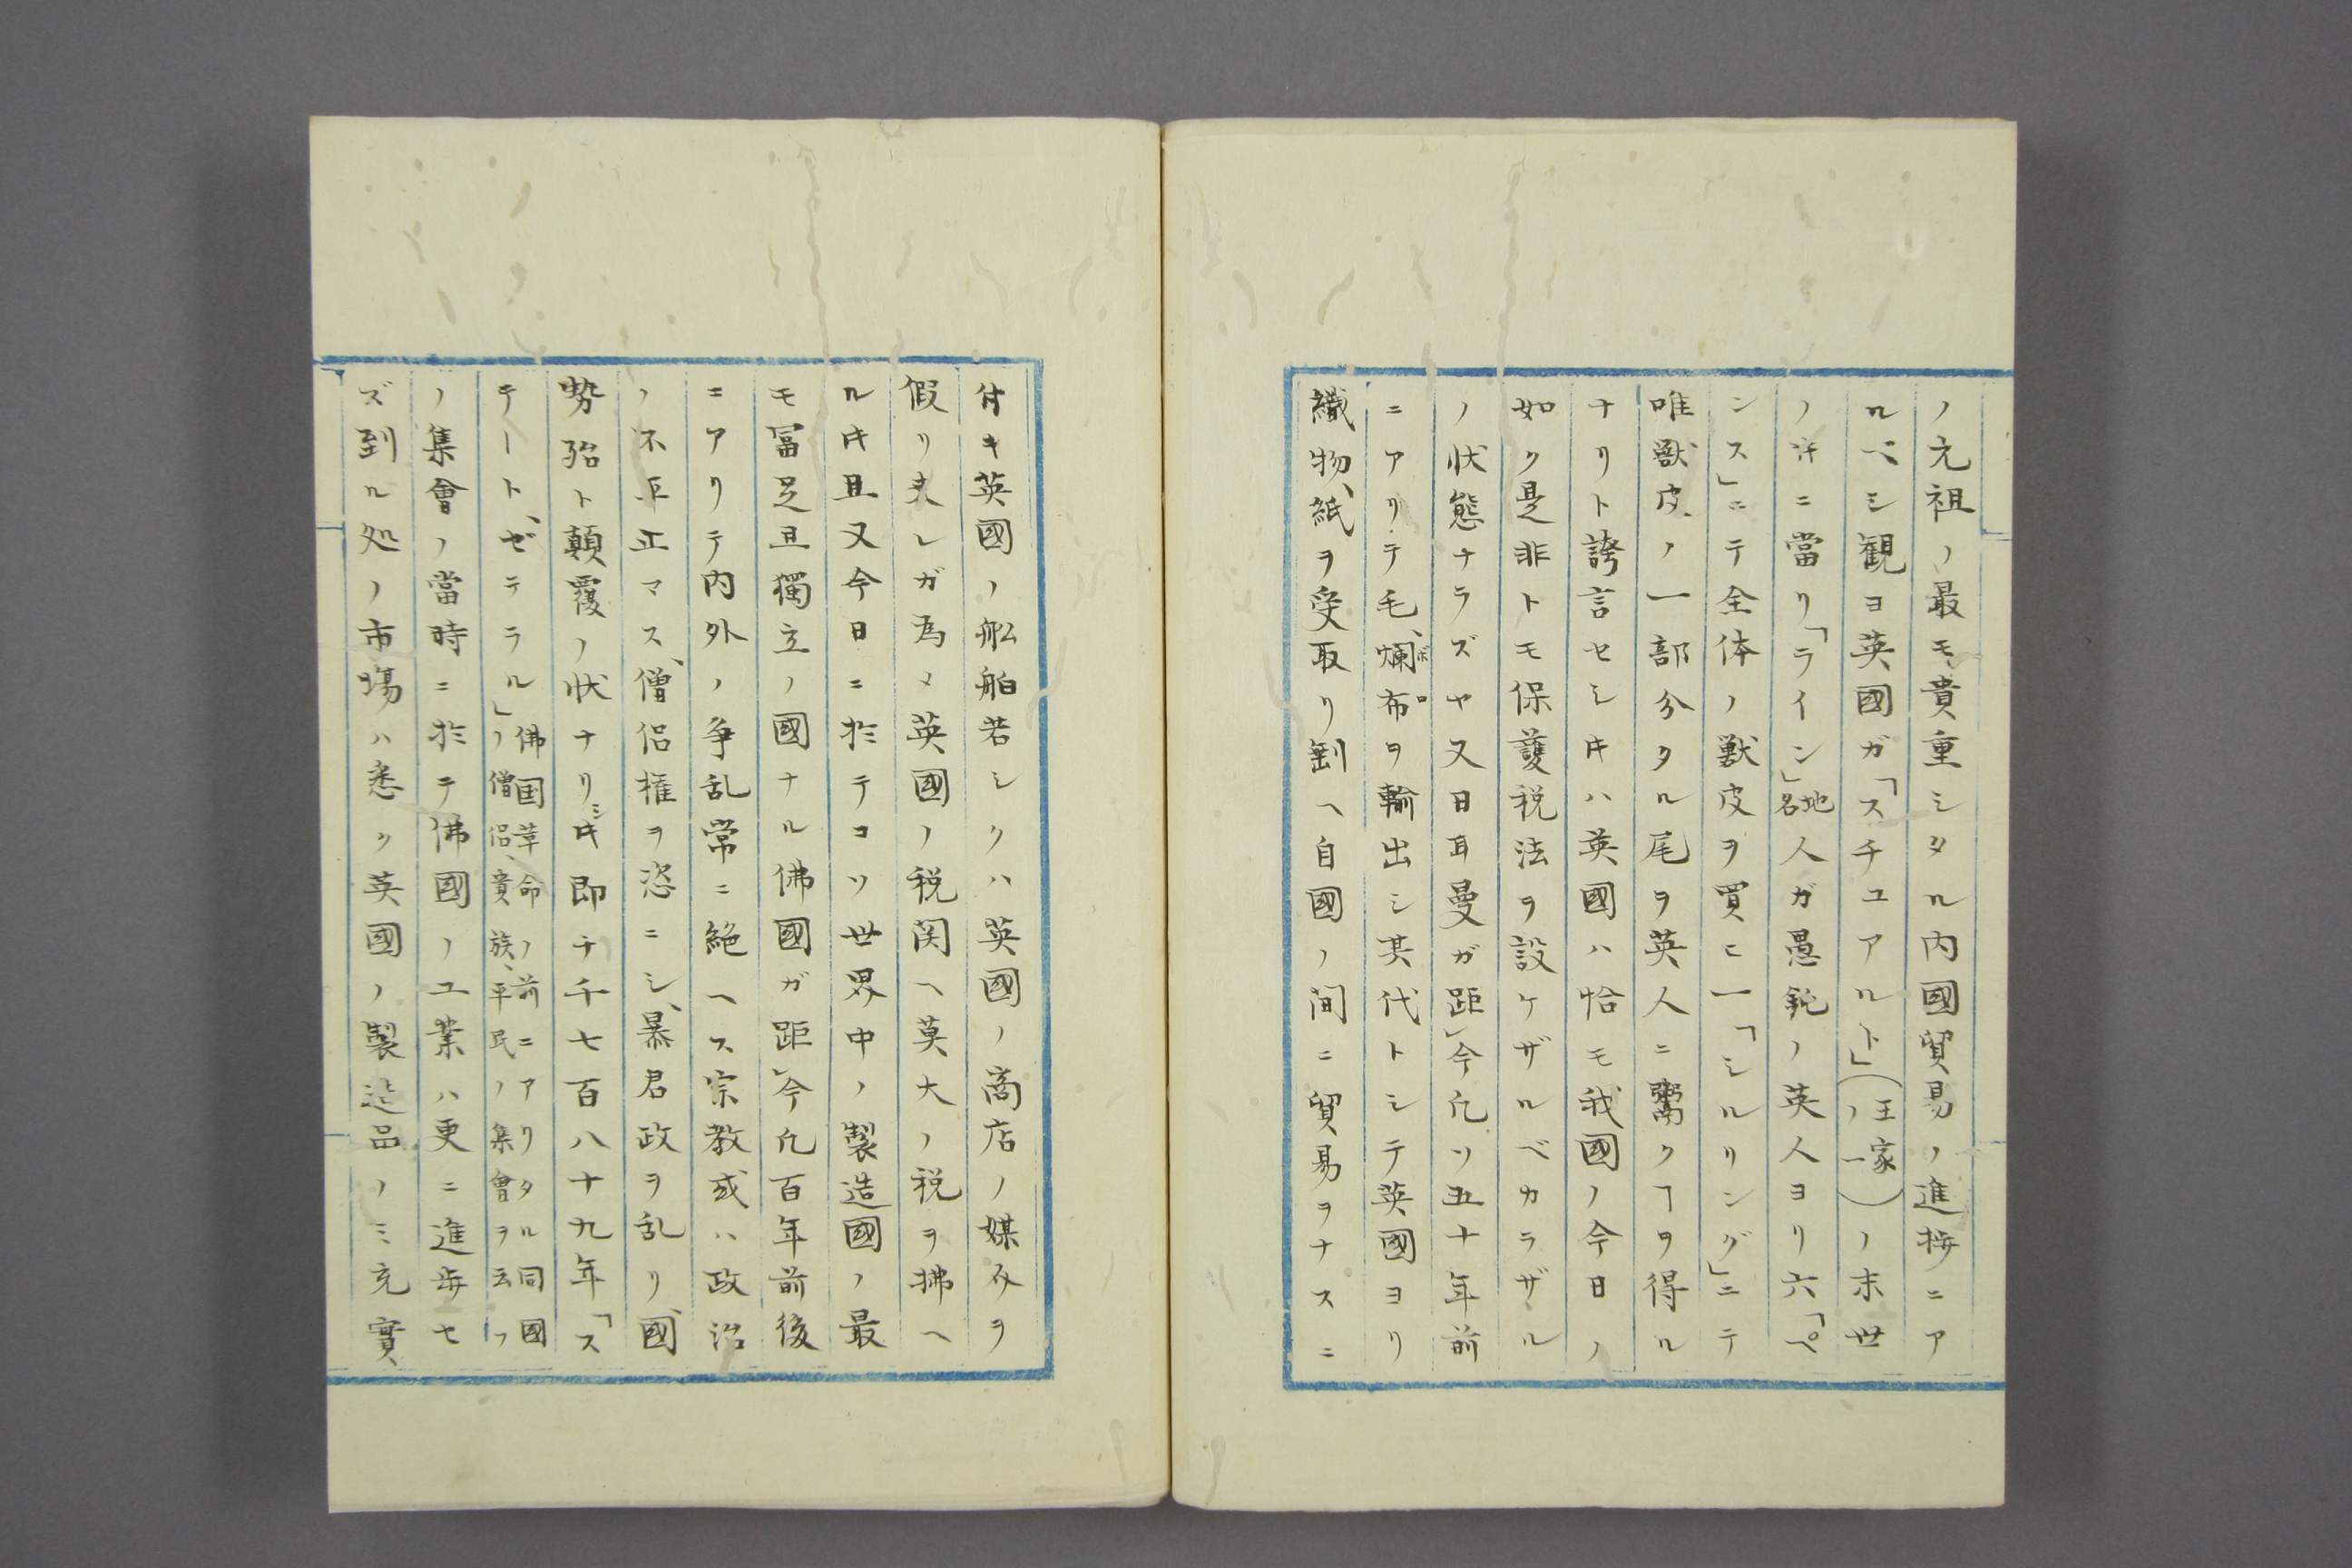 ノ元祖ノ最モ貴重シタル内國貿易ノ進捗ニア
ルベシ観ヨ英國ガ「スチユアルト」(王家ノ一)ノ末世
ノ許ニ當リ「ライン」地名人ガ愚鈍ノ英人ヨリ六「ペ
ンス」ニテ全体ノ獣皮ヲ買ヒ一「シルリング」ニテ
唯獣皮ノ一部分タル尾ヲ英人ニ鬻クヿヲ得ル
ナリト誇言セシキハ英國ハ恰モ我國ノ今日ノ
如ク是非トモ保護税法ヲ設ケザルベカラザル
ノ状態ナラズヤ又日耳曼ガ距今凡ソ五十年前
ニアリテ毛、爛布ボロヲ輸出シ其代トシテ英國ヨリ
織物、紙ヲ受取リ剰ヘ自國ノ间ニ貿易ヲナスニ
付キ英國ノ舩舶若シクハ英國ノ商店ノ媒介ヲ
假リ夫レガ為メ英國ノ税関ヘ莫大ノ税ヲ拂ヘ
ルキ且又今日ニ於テコソ世界中ノ製造國ノ最
モ冨足且獨立ノ國ナル佛國ガ距今凡百年前後
ニアリテ内外ノ争乱常ニ絶ヘス宗教或ハ政治
ノ不平正マス、僧侶権ヲ恣ニシ、暴君政ヲ乱リ、國
勢殆ト顛覆ノ状ナリシキ即チ千七百八十九年「ス
テート、ゼテラル」佛国革命ノ前ニアリタル同國ノ僧侶、貴族、平民ノ集會ヲ云フ
ノ集會ノ當時ニ於テ佛國ノ工業ハ更ニ進歩セ
ズ到ル処ノ市塲ハ悉ク英國ノ製造品ノミ充實